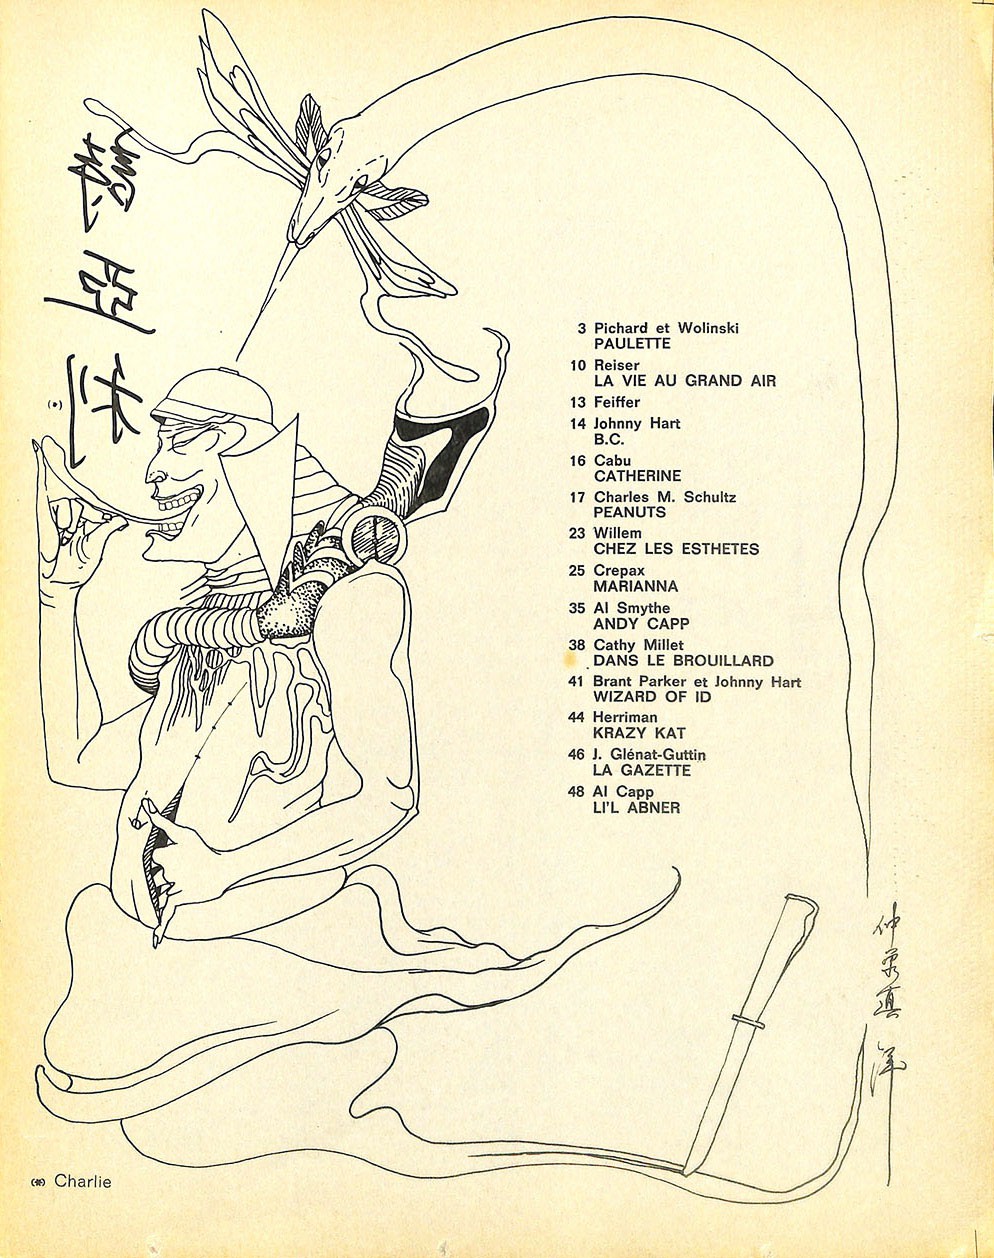 3 Pichard et Wolinski
PAULETTE
10 Reiser
LA VIE AU GRAND AIR
13 Feiffer
14 Johnny Hart
B.C.
16 Cabu
CATHERINE
17 Charles M. Schultz
PEANUTS
23 Willem
CHEZ LES ESTHETES
25 Crepax
MARIANNA
35 Al Smythe
ANDY CAPP
38 Cathy Millet
DANS LE BROUILLARD
41 Brant Parker et Johnny Hart
WIZARD OF ID
44 Herriman
KRAZY KAT
46 J. Glénat-Guttin
LA GAZETTE
48 Al Capp
LI'L ABNER
(*) Charlie